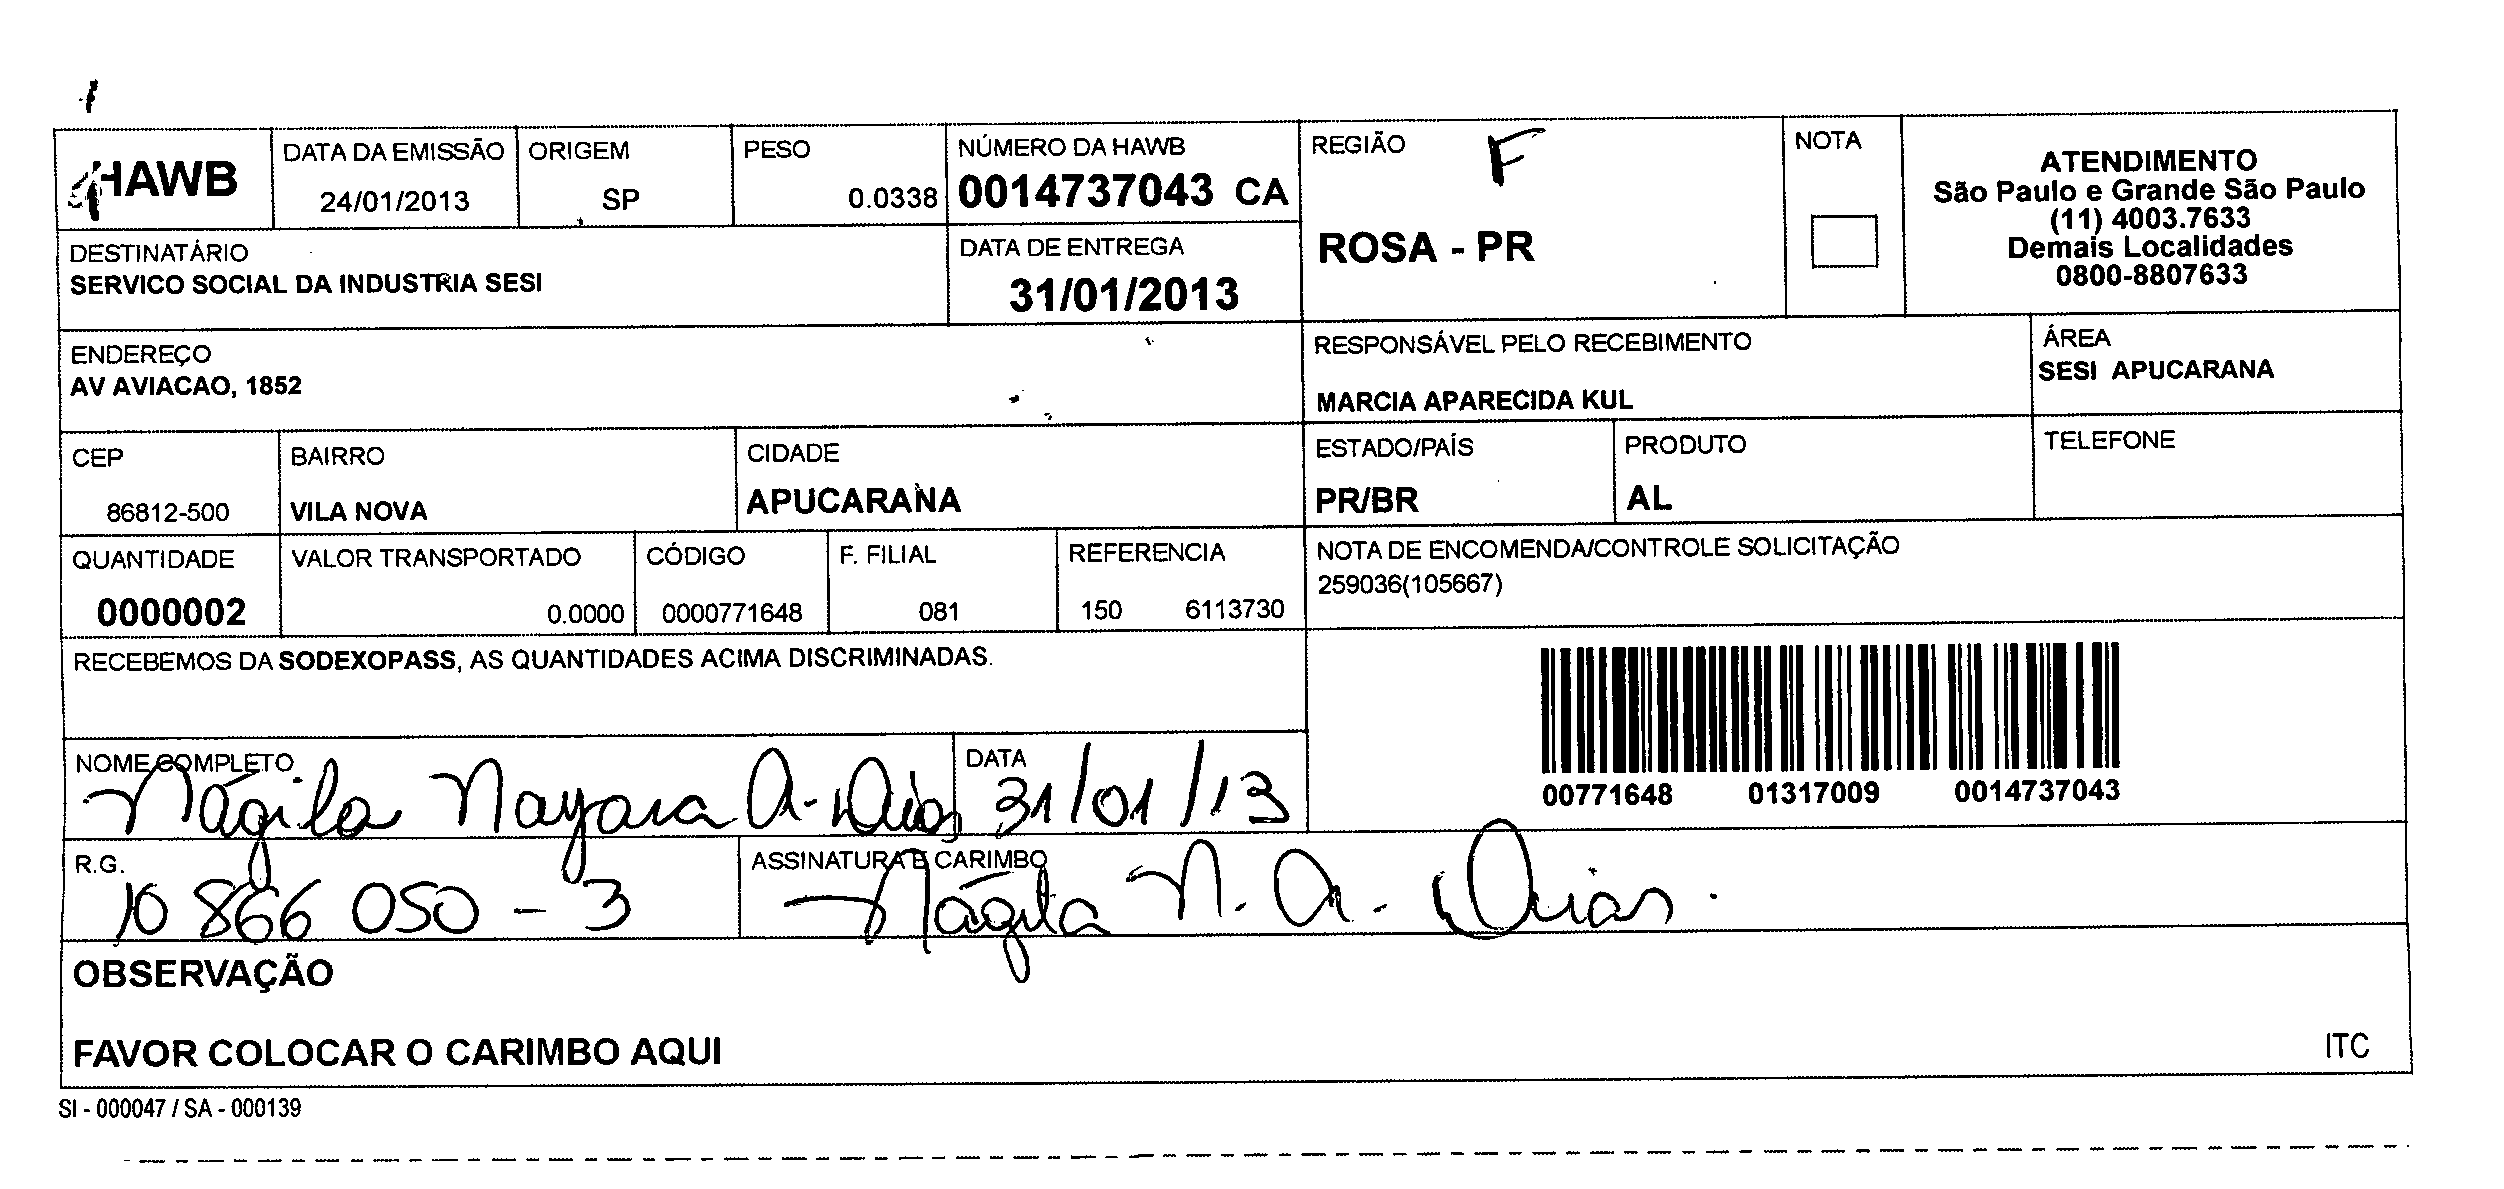 HAWB
DATA DA EMISSÃO
24/01/2013
ORIGEM
SP
PESO
0.0338
NÚMERO DA HAWB
0014737043 CA
REGIÃO
F
ROSA - PR
NOTA
ATENDIMENTO
São Paulo e Grande São Paulo
(11) 4003.7633
Demais Localidades
0800-8807633
DESTINATÁRIO
SERVICO SOCIAL DA INDUSTRIA SESI
DATA DE ENTREGA
31/01/2013
ENDEREÇO
AV AVIACAO, 1852
RESPONSÁVEL PELO RECEBIMENTO
MARCIA APARECIDA KUL
ÁREA
SESI APUCARANA
CEP
86812-500
BAIRRO
VILA NOVA
CIDADE
APUCARANA
ESTADO/PAÍS
PR/BR
PRODUTO
AL
TELEFONE
QUANTIDADE
0000002
VALOR TRANSPORTADO
0.0000
CÓDIGO
0000771648
F. FILIAL
081
REFERENCIA
150 6113730
NOTA DE ENCOMENDA/CONTROLE SOLICITAÇÃO
259036(105667)
RECEBEMOS DA SODEXOPASS, AS QUANTIDADES ACIMA DISCRIMINADAS.
00771648 01317009 0014737043
NOME COMPLETO
Nágila Nayara A. Dias
DATA
31/01/13
R.G.
10 866 050 - 3
ASSINATURA E CARIMBO
Nágila N. A. Dias.
OBSERVAÇÃO
FAVOR COLOCAR O CARIMBO AQUI
ITC
SI - 000047 / SA - 000139